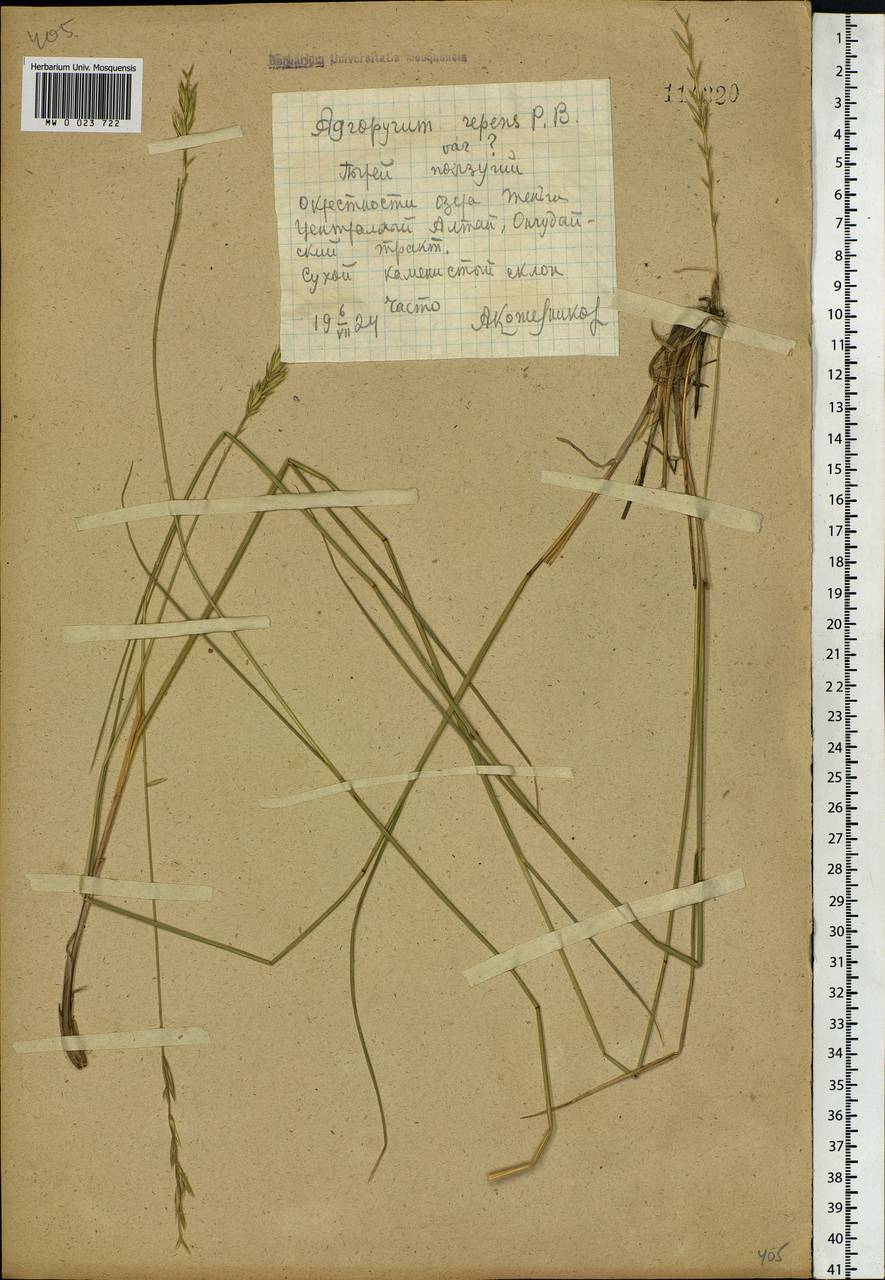 405.
Herbarium Univ. Mosquensis
MW 0 023 722
Herbarium Universitatis Mosquensis
Agropyrum repens P. B.
var ?
Пырей ползучий
Окрестности озера
Центральный Алтай, Онгудай-
ский тракт.
Сухой каменистый склон
часто
19 6/VII 24
АКожевников
405
1
2
3
4
5
6
7
8
9
10
11
12
13
14
15
16
17
18
19
20
21
22
23
24
25
26
27
28
29
30
31
32
33
34
35
36
37
38
39
40
41